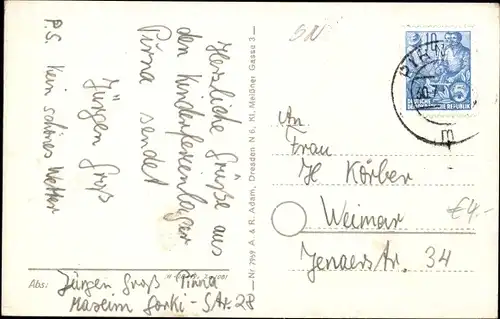 Herzliche Grüße aus
den Kinderferienlager
Pirna sendet
Jürgen Groß
P.S. Kein schönes Wetter
Abs: Jürgen Groß Pirna
Maxim Gorki-Str. 28
Nr. 7959 A. & R. Adam, Dresden N 6, Kl. Meißner Gasse 3
10
DEUTSCHE
DEMOKRATISCHE REPUBLIK
PIRNA
m
An
Frau
H Körber
Weimar
Jenaerstr. 34
€4,-